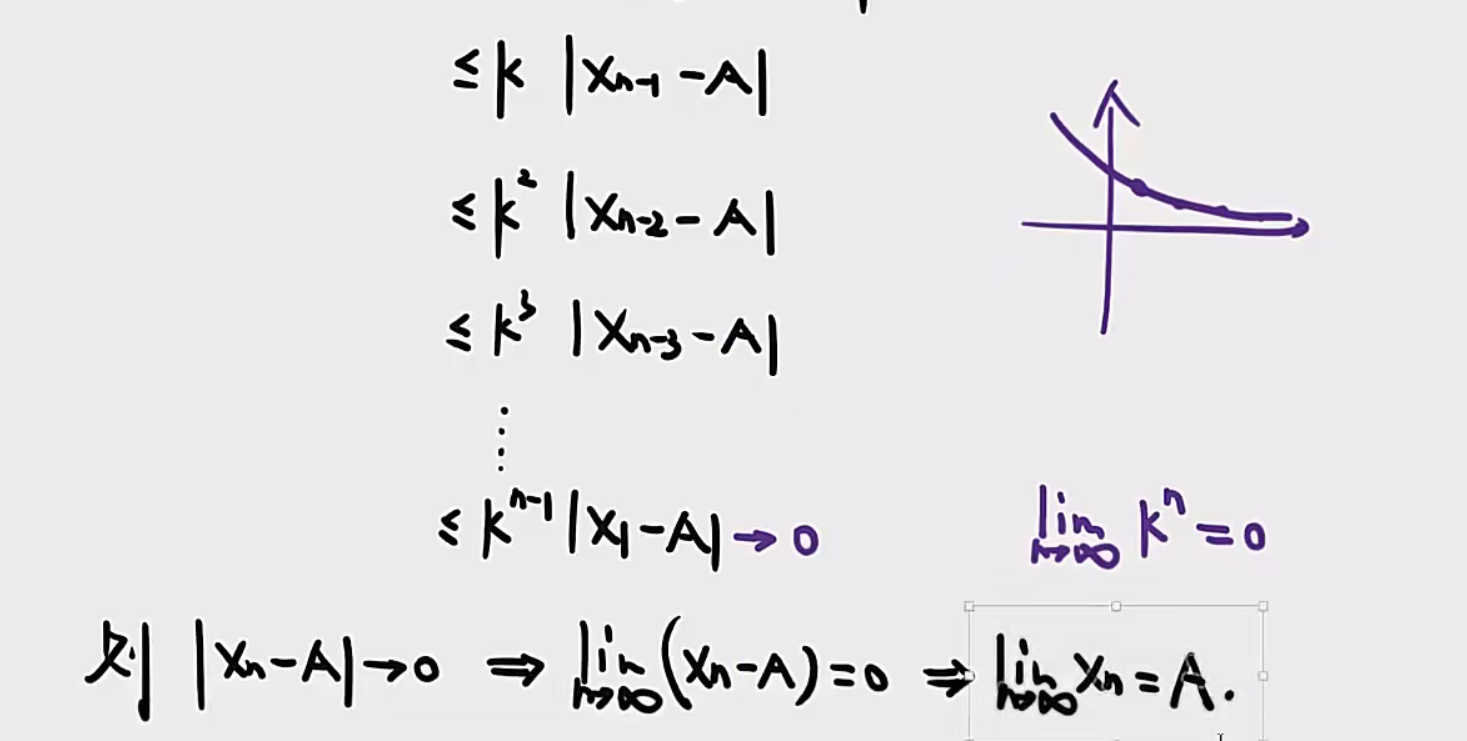 ≤ k |Xn-1 - A|
≤ k² |Xn-2 - A|
≤ k³ |Xn-3 - A|
⋮
≤ k^{n-1} |X1 - A| → 0
lim_{n→∞} k^n = 0
则 |Xn - A| → 0 ⇒ lim_{n→∞} (Xn - A) = 0 ⇒ lim_{n→∞} Xn = A.